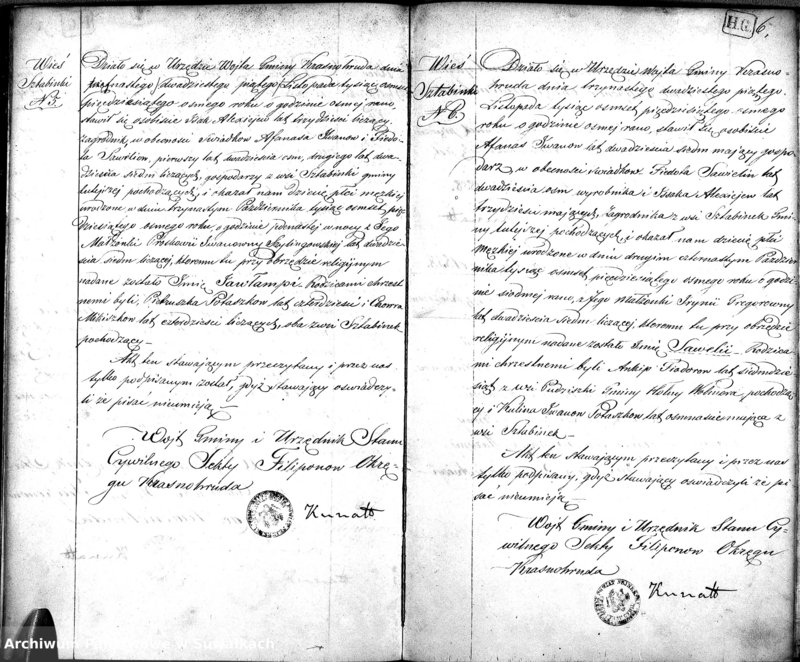 Wieś
Sztabinki
N 5.
Działo się w Urzędzie Wójta Gminy Krasnohruda dnia
trzynastego dwudziestego piątego Listopada tysiąc osmset
pięćdziesiątego osmego roku o godzinie osmej rano,
stawił się osobiście Isak Alexiejew lat trzydzieści liczący,
zagrodnik, w obecności świadków Afanasa Iwanow i Fiedo-
ta Sawelien, pierwszy lat dwadzieścia osm, drugiego lat dwa-
dzieścia siedm liczących, gospodarzy z wsi Sztabinki gminy
tutejszej pochodzących, i okazał nam dziecię płci męzkiej
urodzone w dniu trzynastym Października tysiąc osmset, pięć-
dziesiątego osmego roku o godzinie jedenastej w nocy z Jego
Małżonki Iwanowny lat dwadzie-
ścia siedm liczącej, któremu to przy obrzędzie religijnym
nadane zostało Imię Jawłampi. Rodzicami chrzest-
nemi byli, Pietruszka Potaszkow lat czterdzieści i
lat czterdzieści liczących, oba z wsi Sztabinek
pochodzący.
Akt ten stawającym przeczytany i przez nas
tylko podpisanym został, gdyż stawający oświadczy-
li że pisać nieumieją
Wójt Gminy i Urzędnik Stanu
Cywilnego Sekty Filiponow Okrę-
gu Krasnohruda
Kunatt
H.G. 6.
Wieś
Sztabinki
N 6.
Działo się w Urzędzie Wójta Gminy Krasno-
hruda dnia trzynastego dwudziestego piątego
Listopada tysiąc osmset, pięćdziesiątego osmego
roku o godzinie osmej rano, stawił się osobiście
Afanas Iwanow lat dwadzieścia siedm mający gospo-
darz w obecności świadków Fiedota Sawelin lat
dwadzieścia osm wyrobnika i Isaka Alexiejew lat
trzydzieści mających, Zagrodnika z wsi Sztabinek Gmi-
ny tutejszej pochodzących, i okazał nam dziecię płci
męzkiej urodzone w dniu drugim czternastym Paździer-
nika tysiąc osmset, pięćdziesiątego osmego roku o godzi-
nie siódmej rano, z Jego małżonki Irynii Gregorewny
lat dwadzieścia siedm liczącej, któremu tu przy obrzędzie
religijnym nadane zostało Imię Sawelii. Rodzica-
mi chrzestnemi byli Ankip Fiodorow lat siedmdzie-
siąt z wsi Gminy Hołny Wolmera pochodzą-
cy i Kulina Iwanow Potaszkow lat osmnaście mająca z
wsi Sztabinek
Akt ten stawającym przeczytany i przez nas
tylko podpisany, gdyż stawający oświadczyli że pi-
sać nieumieją
Wójt Gminy i Urzędnik Stanu Cy-
wilnego Sekty Filiponow Okręgu
Krasnohruda
Kunatt